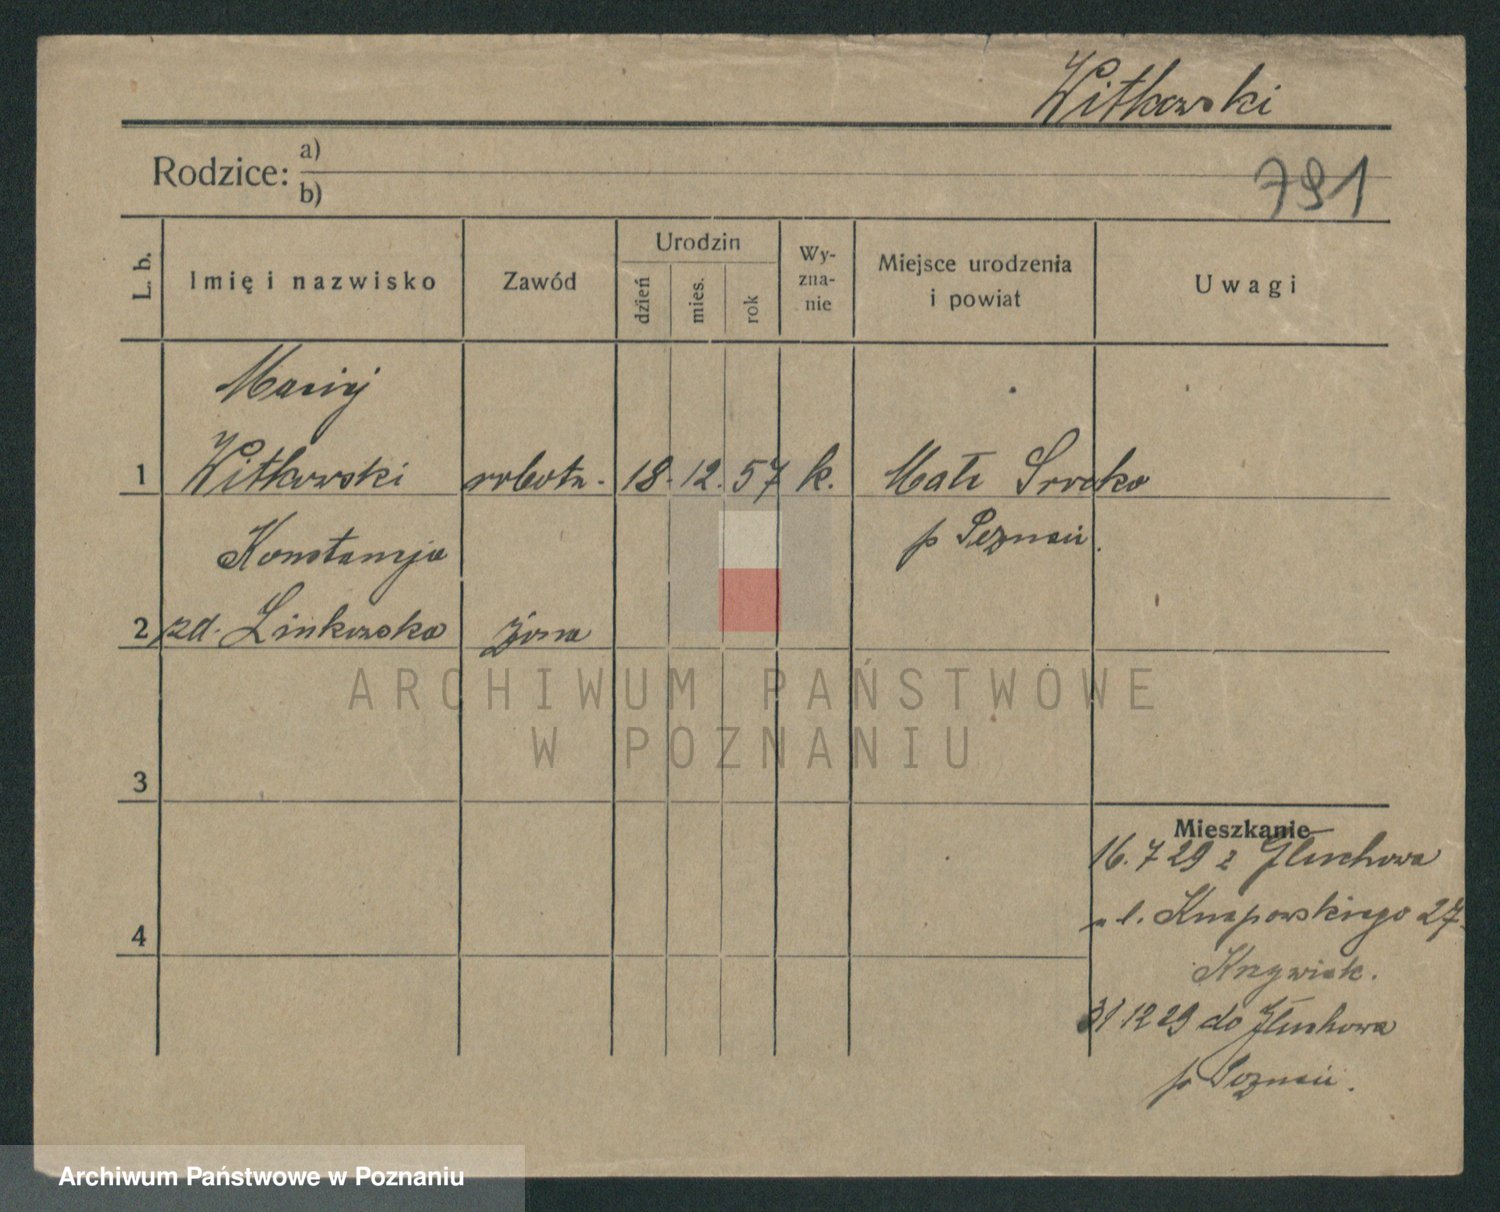 Witkowski
Rodzice: a)
b)
791
L. b.
Imię i nazwisko
Zawód
Urodzin
dzień
mies.
rok
Wy-
zna-
nie
Miejsce urodzenia
i powiat
Uwagi
Maciej
1 Witkowski robotn. 18. 12. 57 k. Małe Sroka
p Poznań.
Konstancja
2 zd. Linkowska żona
3
4
Mieszkanie
16. 7 29 z Głuchowa
ul. Knapowskiego 27.
31 12 29 do Głuchowa
p Poznań.
ARCHIWUM PAŃSTWOWE
W POZNANIU
Archiwum Państwowe w Poznaniu